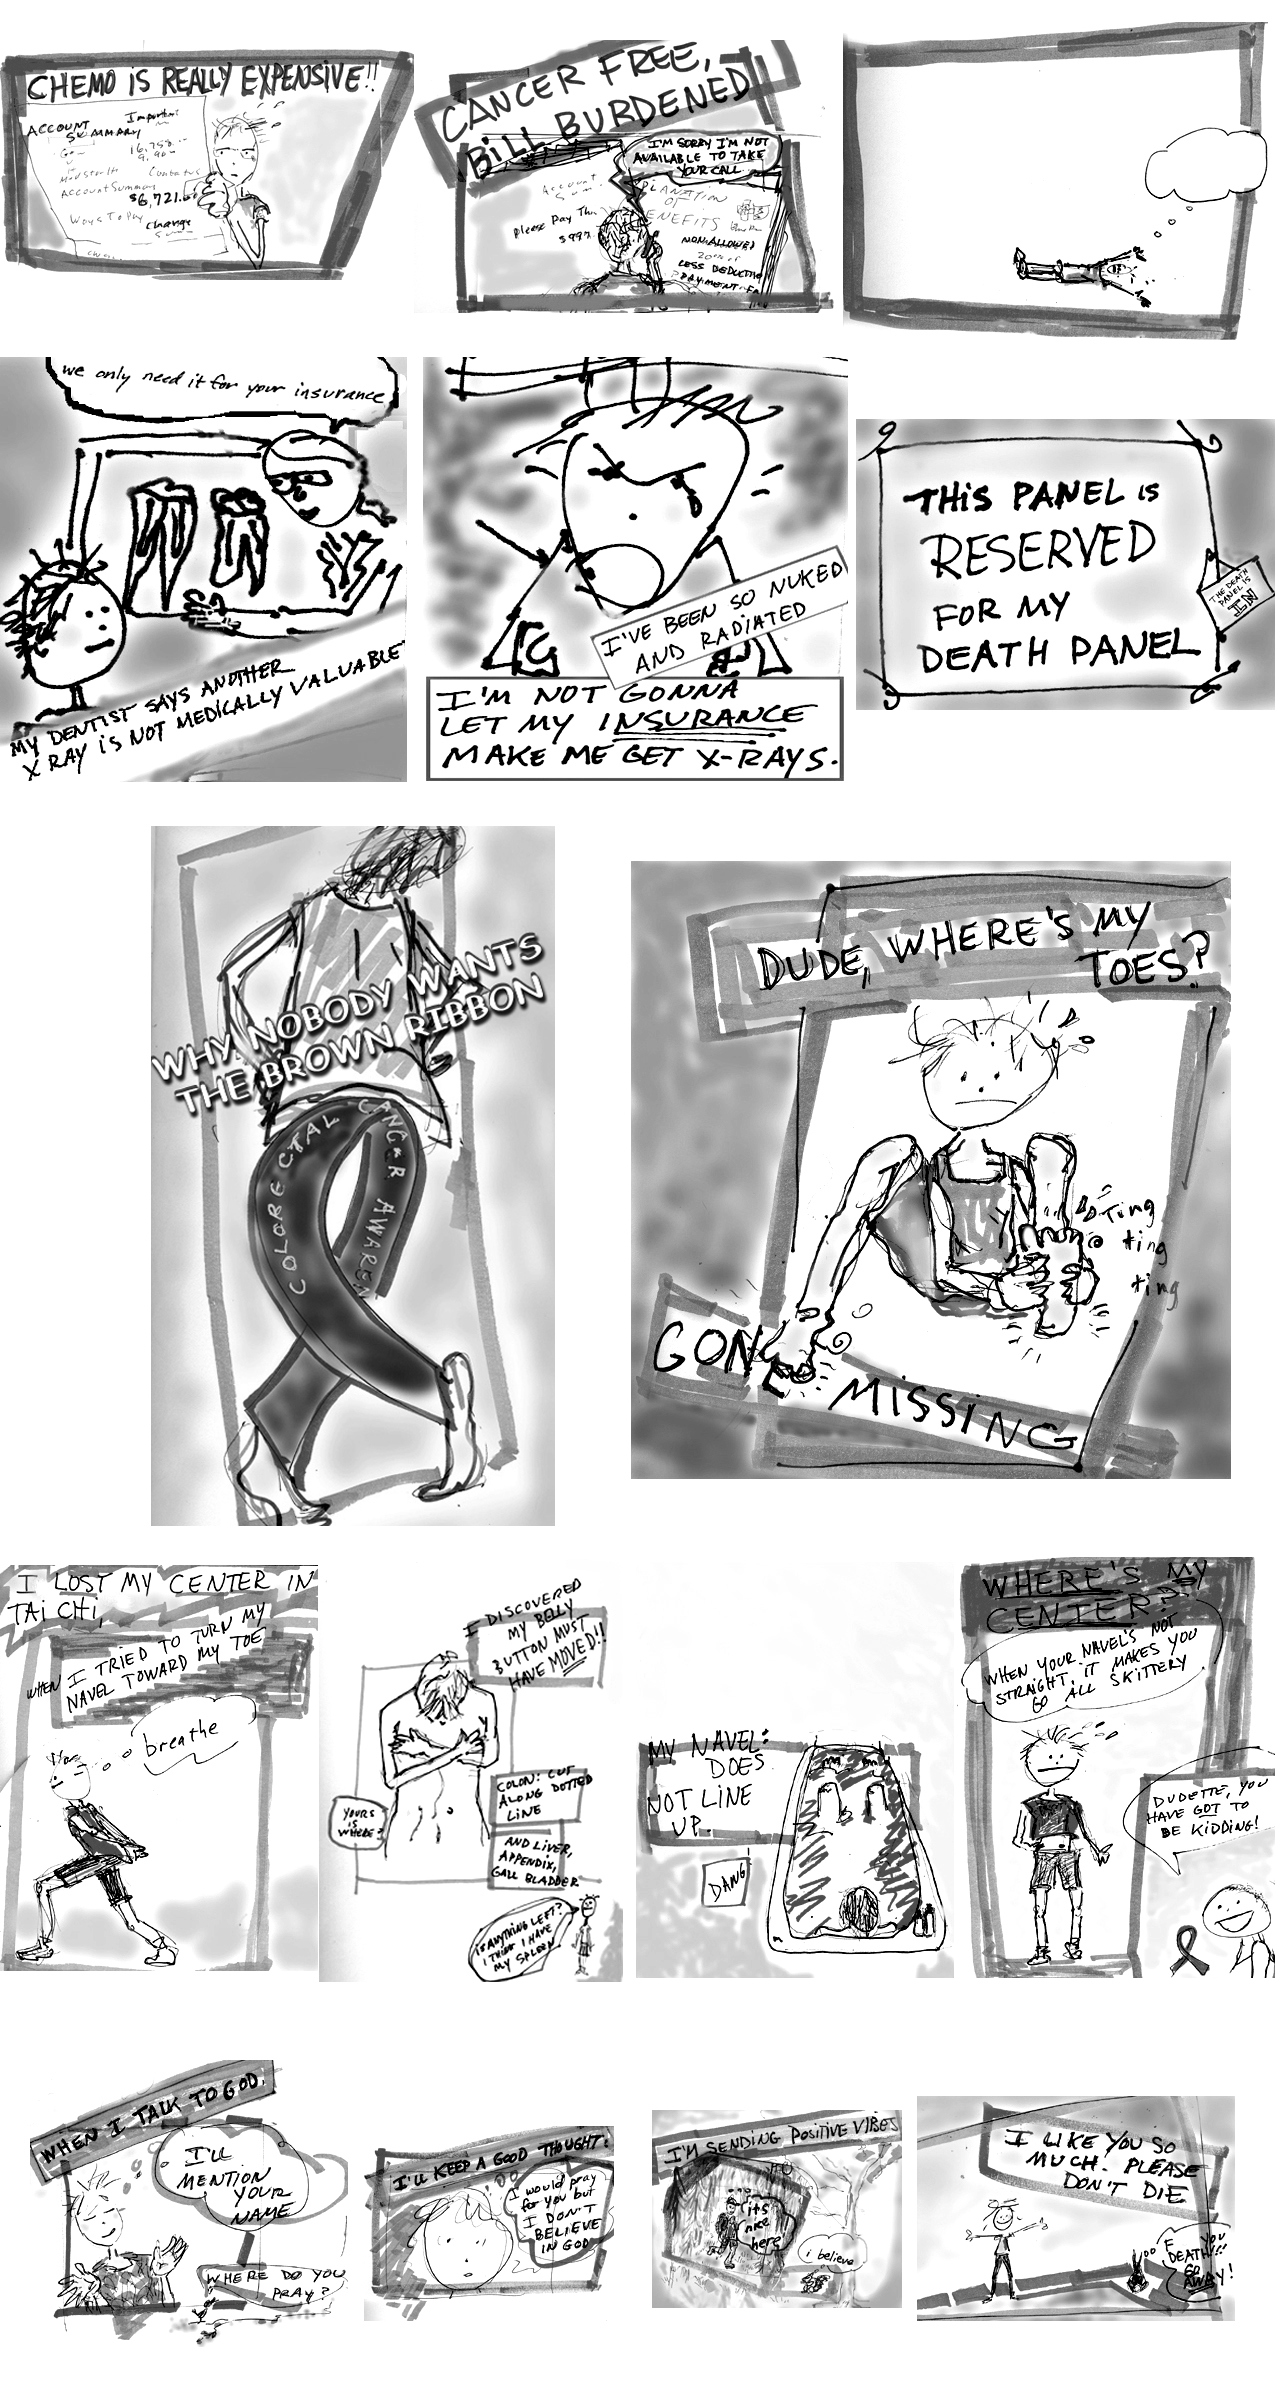 CHEMO IS REALLY EXPENSIVE!!
ACCOUNT
SUMMARY
Important
16,758
9.90
Contact us
Account Summary
$6,721.60
Ways To Pay
Change
CANCER FREE,
BILL BURDENED
I'M SORRY I'M NOT
AVAILABLE TO TAKE
YOUR CALL
Account
Please Pay This
$997.
PLANATION
OF
ENEFITS
NON ALLOWED
20% of
LESS DEDUCTIBLE
PAYMENT
we only need it for your insurance
MY DENTIST SAYS ANOTHER
X RAY IS NOT MEDICALLY VALUABLE
I'VE BEEN SO NUKED
AND RADIATED
I'M NOT GONNA
LET MY INSURANCE
MAKE ME GET X-RAYS.
THIS PANEL IS
RESERVED
FOR MY
DEATH PANEL
THE DEATH
PANEL IS
IN
WHY NOBODY WANTS
THE BROWN RIBBON
COLORECTAL
CANCER AWAREN
DUDE, WHERE'S MY
TOES?
Ting
ting
ting
GONE MISSING
I LOST MY CENTER IN
TAI CHI,
WHEN I TRIED TO TURN MY
NAVEL TOWARD MY TOE
breathe
I DISCOVERED
MY BELLY
BUTTON MUST
HAVE MOVED!!
COLON: CUT
ALONG DOTTED
LINE
YOURS
IS
WHERE?
AND LIVER,
APPENDIX,
GALL BLADDER
IS ANYTHING LEFT?
I THINK I HAVE
MY SPLEEN
MY NAVEL:
DOES
NOT LINE
UP.
DANG
WHERE'S MY
CENTER?
WHEN YOUR NAVEL'S NOT
STRAIGHT. IT MAKES YOU
GO ALL SKITTERY
DUDETTE, YOU
HAVE GOT TO
BE KIDDING!
WHEN I TALK TO GOD.
I'LL
MENTION
YOUR
NAME
WHERE DO YOU
PRAY?
I'LL KEEP A GOOD THOUGHT.
I would pray
for you but
I DON'T
BELIEVE
IN GOD
I'M SENDING POSITIVE VIBES
its
nice
here!
i believe
I LIKE YOU SO
MUCH. PLEASE
DON'T DIE
F YOU
DEATH!!!
GO
AWAY!